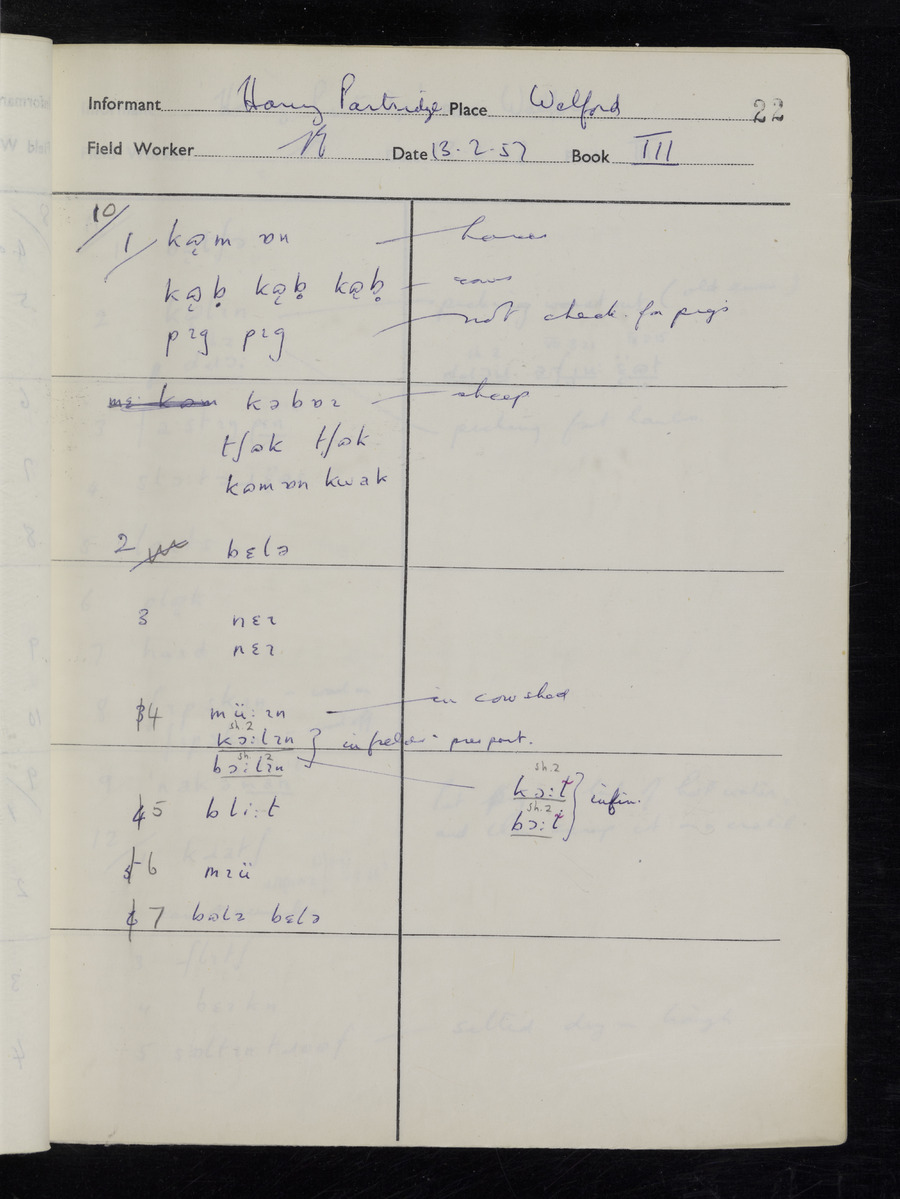 Informant Harry Partridge Place Welford 22
Field Worker Date 13.2.57 Book III
10/
1/ kə̨m ɒn — horses
kə̨ḅ kə̨ḅ kə̨ḅ — cows
pɪg pɪg — not check. for pigs
kəbəɪ — sheep
tʃək tʃək
kəmɒn kwak
2 bɛlə
3 nɛɪ
nɛɪ
4 mü:ɪn — in cow shed
sh.2
kɔ:lɪn } in field - pres part.
sh.2
bɔ:lɪn
sh.2
kɔ:ɫ } infin.
sh.2
bɔ:ɫ
5 bli:t
6 mɪü
7 bəlɪ bɛlə